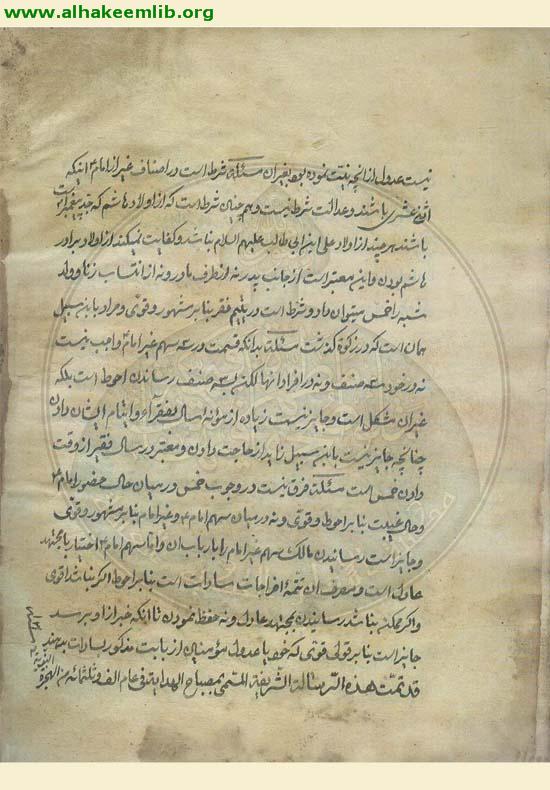 www.alhakeemlib.org
نیست عدول از انچه نیت نموده بود بغیر ان مسئلة شرط است در اصناف غیر از امام ٴ اینکه
اثنی عشری باشند و عدالت شرط نیست و هم چنین شرط است که از اولاد هاشم که جد پیغمبر است
باشند هر چند از اولاد علی ابن ابی طالب علیهم السلام نباشد و کفایت نمیکند از اولاد برادر
هاشم بودن و این معتبر است از جانب پدر نه از طرف مادر و نه از انتساب زنا و ولد
شبهه را خمس میتوان داد و شرط است در یتیم فقر بنا بر مشهور و قوی و مراد بابن سبیل
همان است که در زکوة گذشت مسئلة بدانکه قسمت در سه سهم غیر امام ٴ واجب نیست
نه در خود سه صنف و نه در افراد انها لکن بسه صنف رساندن احوط است بلکه
غیر ان مشکل است و جایز نیست زیاده از مؤنه سال بفقراء و ایتام ایشان دادن
چنانچه جایز نیست بابن سبیل زاید از حاجت دادن و معتبر در سال فقیر از وقت
دادن خمس است مسئلة فرق نیست در وجوب خمس در میان حال حضور امام ٴ
و حال غیبت بنا بر احوط و قوی و نه در میان سهم امام ٴ و غیر امام بنا بر مشهور و قوی
و جایز است رساندن مالک سهم غیر امام را بارباب ان و اما سهم امام ٴ اختیار با مجتهد
عادل است و مصرف ان تتمهٔ اخراجات سادات است بنا بر احوط اگر نباشد اقوی
و اگر ممکن نباشد رسانیدن بمجتهد عادل و نه حفظ نمودن تا انکه خبر از او برسد
جایز است بنا بر قولی قوی که خود یا عدول مؤمنین از بابت مذکور بسادات بدهند
قد تمت هذه الرسالة الشریفة المسمی بمصباح الهدایة فی عام الف و ثلثمائه من الهجرة
النبویة